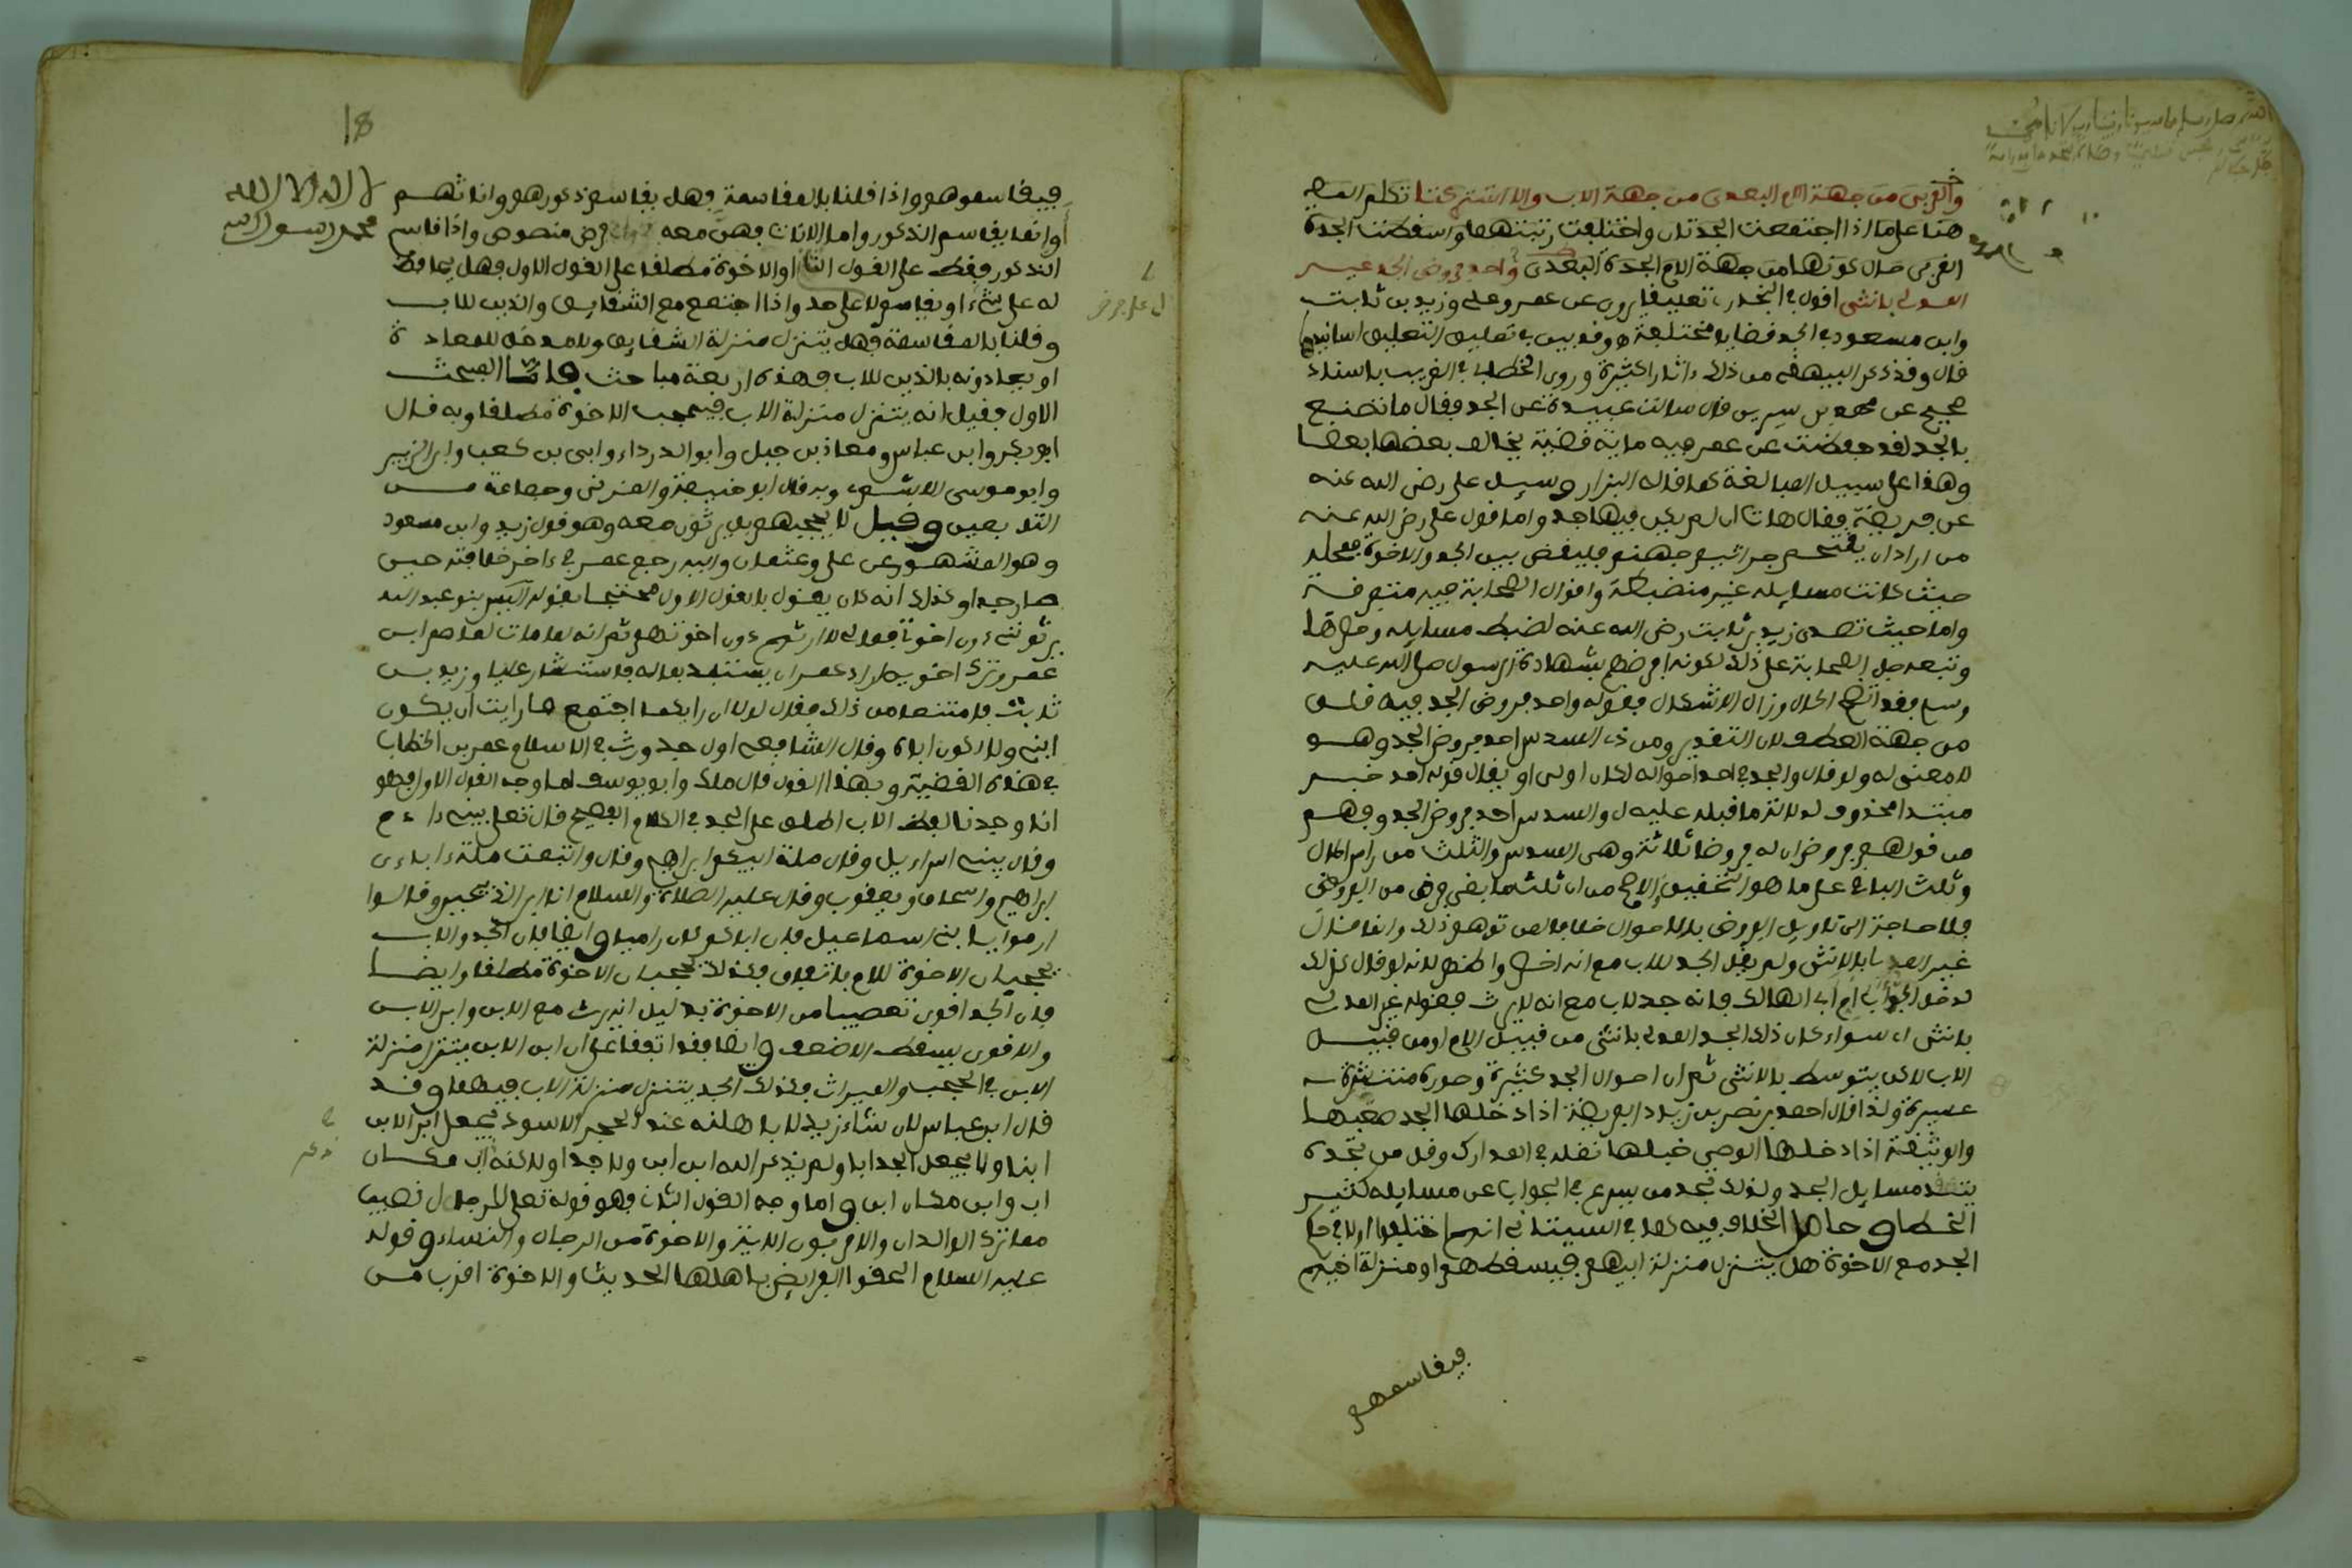 والقربى من جهة الام البعدى من جهة الاب والا اشتركتا تكلم المص
هنا على ما اذا اجتمعت الجدتان واختلفت رتبتهما واسقطت الجدة
القربى حال كونها من جهة الام الجدة البعدى واحد فروض الجد غير
المدلى بانثى اقول في البخارى تعليقا يروى عن عمر وعلي وزيد بن ثابت
وابن مسعود في الجد قضايا مختلفة وقد بين في تعليق التعليق اسانيدها
قال وقد ذكر البيهقي من ذلك ءاثارا كثيرة وروى الخطابي في الغريب باسناد
صحيح عن محمد بن سيرين قال سالت عبيدة عن الجد فقال ما تصنع
بالجد لقد حفظت عن عمر فيه ماية قضية يخالف بعضها بعضا
وهذا على سبيل المبالغة كما قاله البزار وسيل علي رضي الله عنه
عن فريضة فقال هات ان لم يكن فيها جد واما قول علي رضي الله عنه
من اراد ان يقتحم جراثيم جهنم فليقض بين الجد والاخوة فمحله
حيث كانت مسايله غير منضبطة واقوال الصحابة فيه متفرقة
واما حيث تصدى زيد بن ثابت رضي الله عنه لضبط مسايله
وتبعه جل الصحابة على ذلك لكونه افرضهم بشهادة الرسول صلى الله عليه
وسلم فقد اتضح الحال وزال الاشكال فقوله واحد فروض الجد فيه قلق
من جهة العطف لان التقدير ومن ذى السدس احد فروض الجد وهو
لا معنى له ولو قال والجد في احد احواله لكان اولى او يقال قوله احد خبر
مبتدا محذوف لدلالة ما قبله عليه ل والسدس احد فروض الجد وفهم
من قولهم فروض ان له فروضا ثلاثة وهي السدس والثلث من راس المال
وثلث الباقي على ما هو التحقيق الاصح من ان ثلث ما بقي فرض من الفروض
فلا حاجة الى تاويل الفروض بالاحوال خلافا لمن توهم ذلك وانما قال
غير المدلى بالانثى ولم يقل الجد للاب مع انه اخصر واظهر لانه لو قال كذلك
لدخل الجد ابي ام ابي الهالك فانه جد لاب مع انه لا يرث فقوله غير المدلى
بانثى اى سواء كان ذلك الجد المدلى بانثى من قبيل الام او من قبيل
الاب لاكن يتوسط بالانثى ثم ان احوال الجد كثيرة وصوره منتشرة
عسيرة ولذا قال احمد بن نصر بن زياد الفريضة اذا دخلها الجد صعبها
والوثيقة اذا دخلها الوصي خبلها نقله في المدارك وقل من تجده
يتقن مسايل الجد ولذلك تجد من يسرع في الجواب عن مسايله كثير
الخطا وحاصل الخلاف فيه كما في السيتاني انهم اختلفوا اولا في حكم
الجد مع الاخوة هل يتنزل منزلة ابيهم فيسقطهم او منزلة اخيهم
فيقاسمهم
18
لا اله الا الله
محمد رسول الله
فيقاسمهم واذا قلنا بالمقاسمة فهل يقاسم ذكورهم واناثهم
او انما يقاسم الذكور واما الاناث فهن معه فرض منصوص واذا قاسم
الذكور فقط على القول الثاني او الاخوة مطلقا على القول الاول فهل يحافظ
له على شيء او يقاسم ولا على حد واذا اجتمع مع الشقايق والذين للاب
وقلنا بالمقاسمة فهل يتنزل منزلة الشقايق ولا مدخل للمعادة
او يعادونه بالذين للاب فهذه اربعة مباحث فاما المبحث
الاول فقيل انه يتنزل منزلة الاب فيحجب الاخوة مطلقا وبه قال
ابو بكر وابن عباس ومعاذ بن جبل وابو الدرداء وابي بن كعب وابن الزبير
وابو موسى الاشعري وبه قال ابو حنيفة والمزني وجماعة من
التابعين وقيل لا يحجبهم بل يرثون معه وهو قول زيد وابن مسعود
وهو المشهور عن علي وعثمان واليه رجع عمر في ءاخر خلافته حين
صار جدا وكذلك انه كان يقول بالقول الاول محتجا بقوله اليس بنو عبد الله
يرثونني دون اخوتي فما لي لا ارثهم دون اخوتهم ثم انه لما مات عاصم ابن
عمر وترك اخويه اراد عمر ان يستبد بماله فاستشار عليا وزيد بن
ثابت فامتنعا من ذلك فقال لولا ان رايكما اجتمع ما رايت ان يكون
ابني ولا اكون اباه وقال الشافعي اول جد ورث في الاسلام عمر بن الخطاب
في هذه القضية وبهذا القول قال مالك وابو يوسف اما وجه القول الاول فهو
انا وجدنا لفظ الاب اطلق على الجد في الكلام الفصيح قال تعلى يبني ءادم
وقال يبني اسراءيل وقال ملة ابيكم ابراهيم وقال واتبعت ملة ءاباءي
ابراهيم واسحاق ويعقوب وقال عليه الصلاة والسلام انا ابن الذبيحين وقالوا
ارموا يا بني اسماعيل فان اباكم كان راميا وايضا فان الجد والاب
يحجبان الاخوة للام باتفاق فكذلك يحجبان الاخوة مطلقا وايضا
فان الجد اقوى تعصيبا من الاخوة بدليل انه يرث مع الابن وابن الابن
والاقوى يسقط الاضعف وايضا فقد اتفقا على ان ابن الابن يتنزل منزلة
الابن في الحجب والميراث فكذلك الجد يتنزل منزلة الاب فيهما وقد
قال ابن عباس لان شاء زيد لاباهلنه عند الحجر الاسود يجعل ابن الابن
ابنا ولا يجعل الجد ابا ولم يذكر الله ابن ابن ولا جدا ولاكنه اب مكان
اب وابن مكان ابن واما وجه القول الثاني فهو قوله تعلى للرجال نصيب
مما ترك الوالدان والاقربون الاية والاخوة من الرجال والنساء وقوله
عليه السلام الحقوا الفرايض باهلها الحديث والاخوة اقرب من